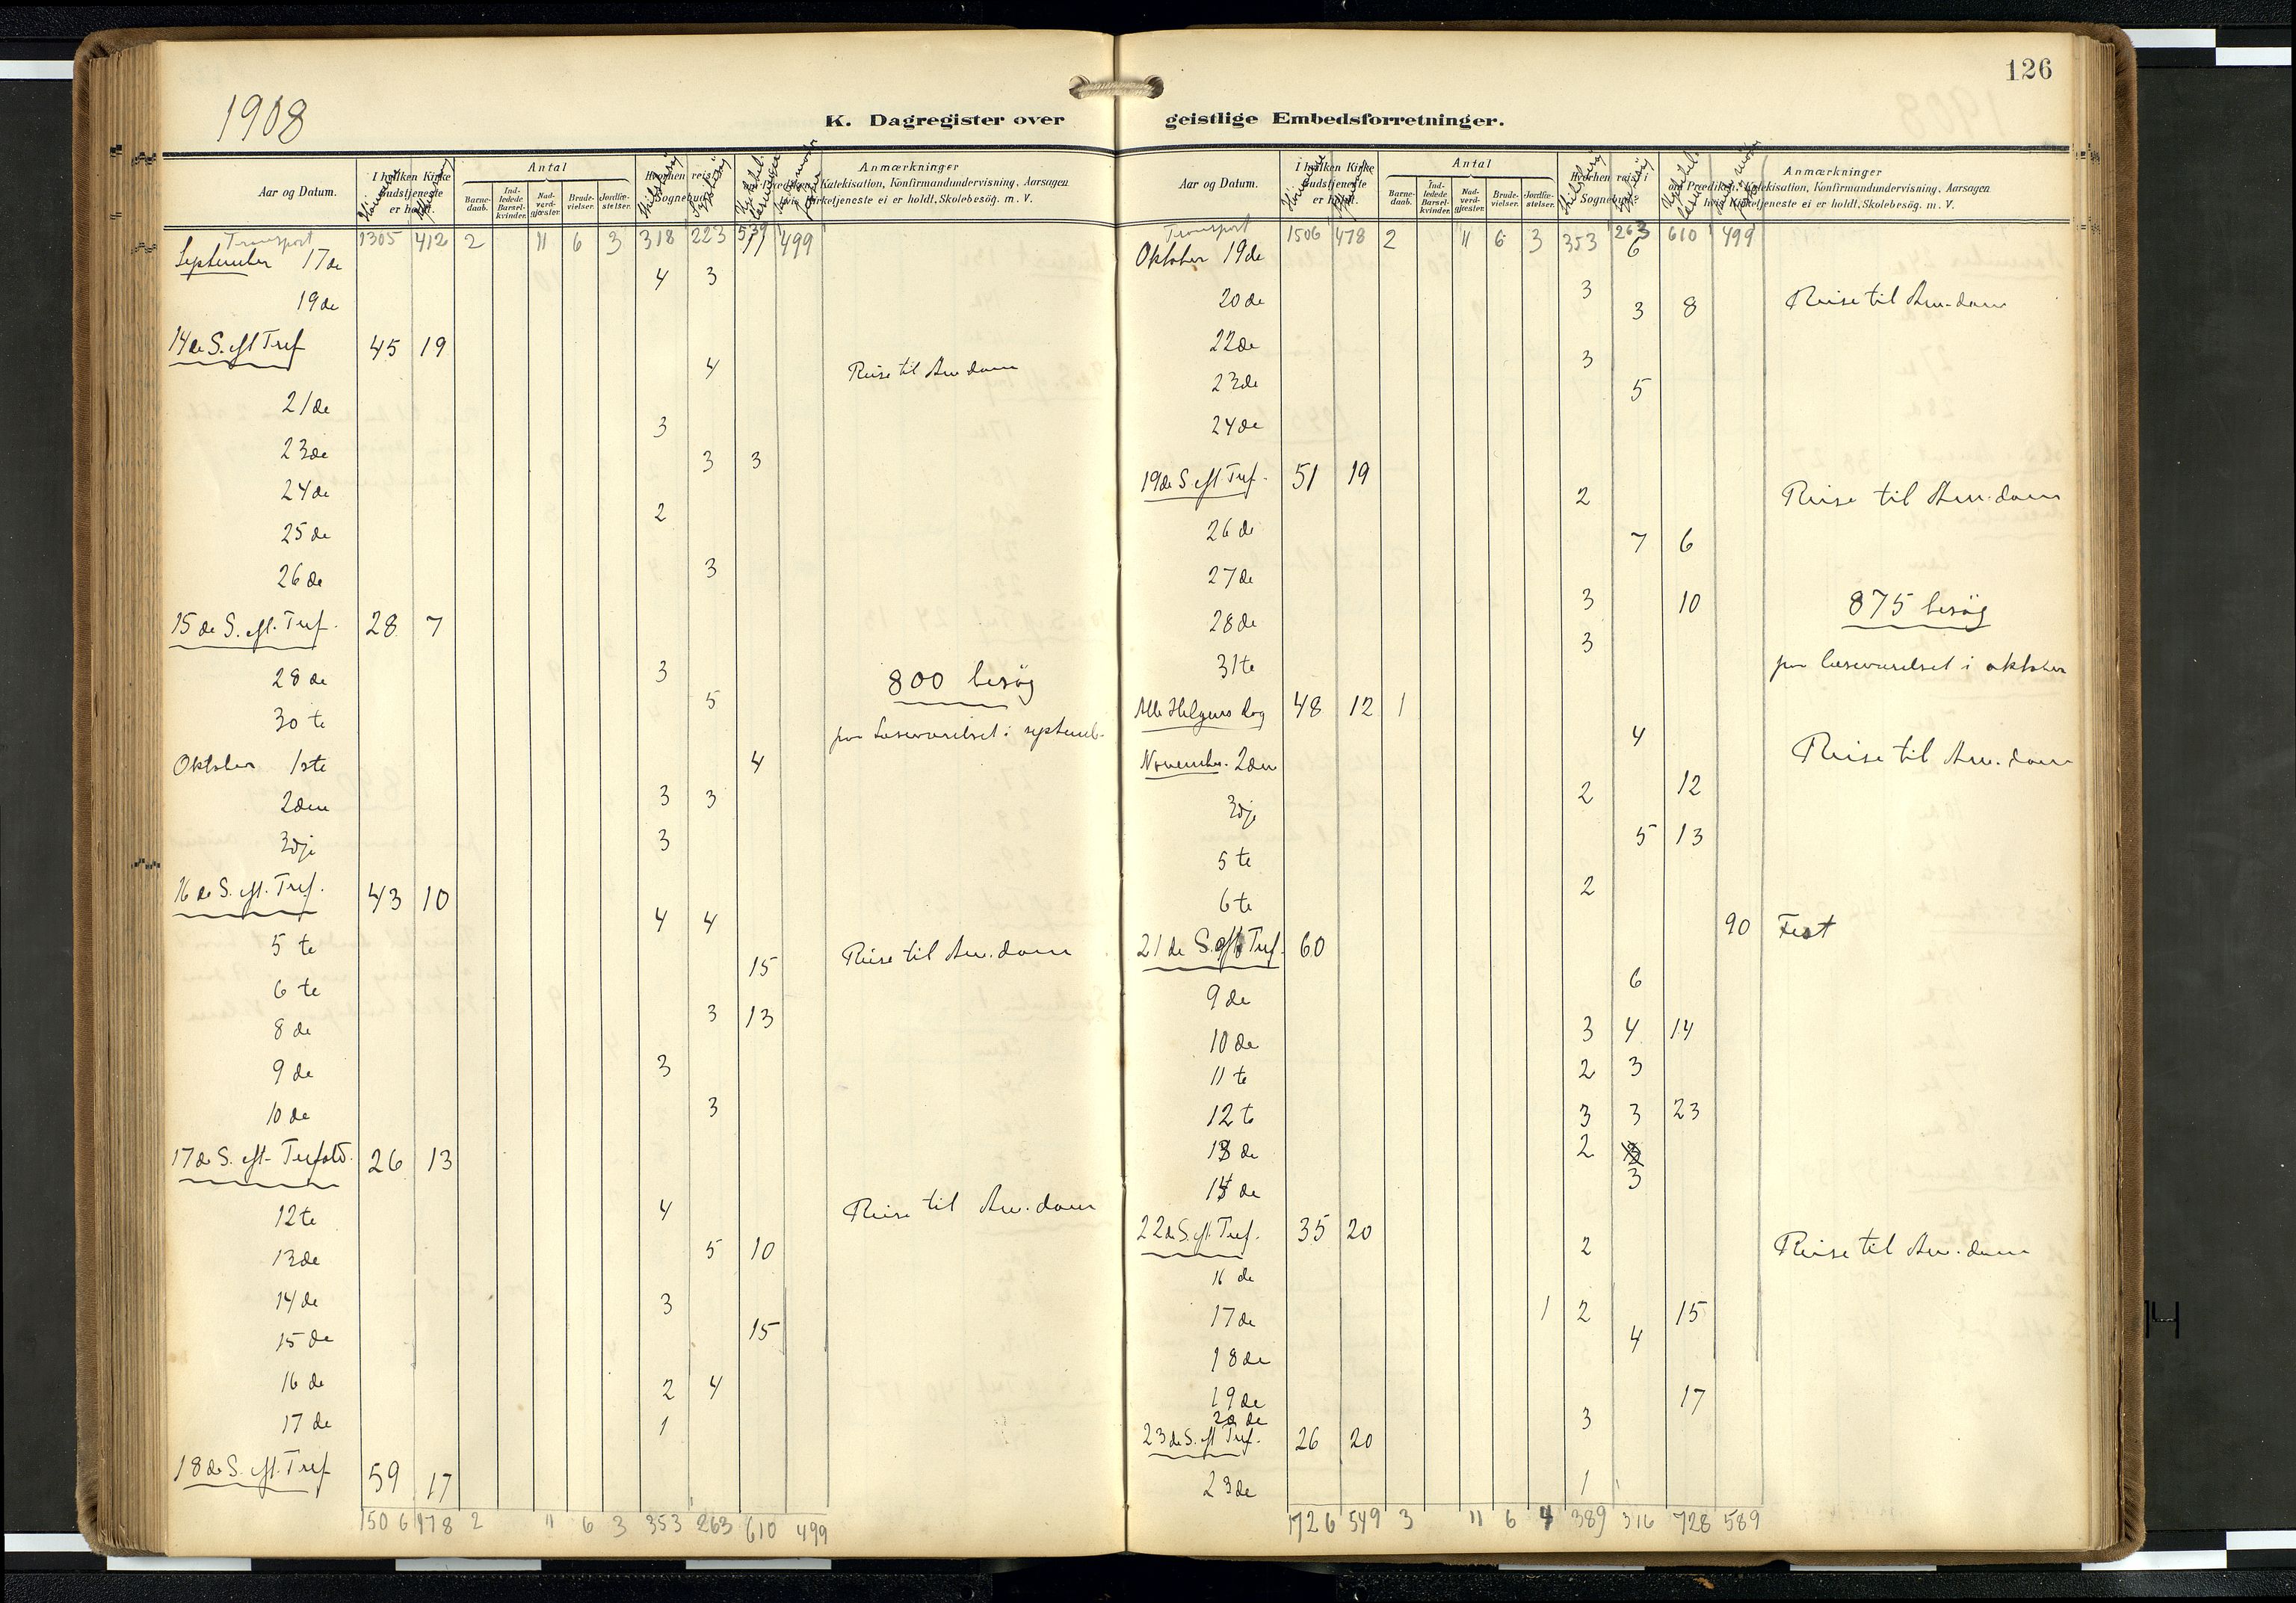 126
1908
K. Dagregister over geistlige Embedsforretninger.
Aar og Datum. I hvilken Kirke Gudstjeneste er holdt. Antal Barnedaab. Indledede Barselkvinder. Nadverdgjæster. Brudevielser. Jordfæstelser. Hvorhen reist i Sognebud. Anmærkninger om Prædiken, Katekisation, Konfirmandundervisning, Aarsagen hvis Kirketjeneste ei er holdt, Skolebesög. m. V.
Transport 1305 412 2 11 6 3 318 223 539 499
September 17de 4 3
19de
14de S. eft Tref 45 19
4 Reise til Am.dam
21de
3
23de 3 3
24de
2
25de
26de 3
15de S. eft. Tref. 28 7
28de 3 800 besög
5
30te paa Læseværelset i septemb.
Oktober 1ste 4
2den 3 3
3dje 3
16de S. eft. Tref. 43 10
4 4
5te Reise til Am.dam
15
6te
8de 3 13
9de 3
10de 3
17de S. eft. Trefold. 26 13
12te 4 Reise til Am.dam
13de 5 10
14de 3
15de 15
16de 2 4
17de 1
18de S. eft. Tref 59 17
1506 478 2 11 6 3 353 263 610 499
Aar og Datum. I hvilken Kirke Gudstjeneste er holdt. Antal Barnedaab. Indledede Barselkvinder. Nadverdgjæster. Brudevielser. Jordfæstelser. Hvorhen reist i Sognebud. Anmærkninger om Prædiken, Katekisation, Konfirmandundervisning, Aarsagen hvis Kirketjeneste ei er holdt, Skolebesög. m. V.
Transport 1506 478 2 11 6 3 353 263 610 499
Oktober 19de 6
3
20de 3 8 Reise til Am.dam
22de 3
23de 5
24de
19de S. eft Tref. 51 19
2 Reise til Am.dam
26de
7 6
27de
3 10 875 besög
28de 3
31te paa læseværelset i oktober
Alle Helgens dag 48 12 1
4
November. 2den Reise til Am.dam
2 12
3dje
5 13
5te
2
6te
90 Fest
21de S. eft Tref. 60
6
9de
3 4 14
10de
11te 2 3
12te 3 3 23
13de 2
14de 3
22de S. eft Tref. 35 20
2 Reise til Am.dam
16de
17de 1 2 15
4
18de
19de 17
20de 3
23de S. eft Tref. 26 20
23de 1
1726 549 3 11 6 4 389 316 728 589